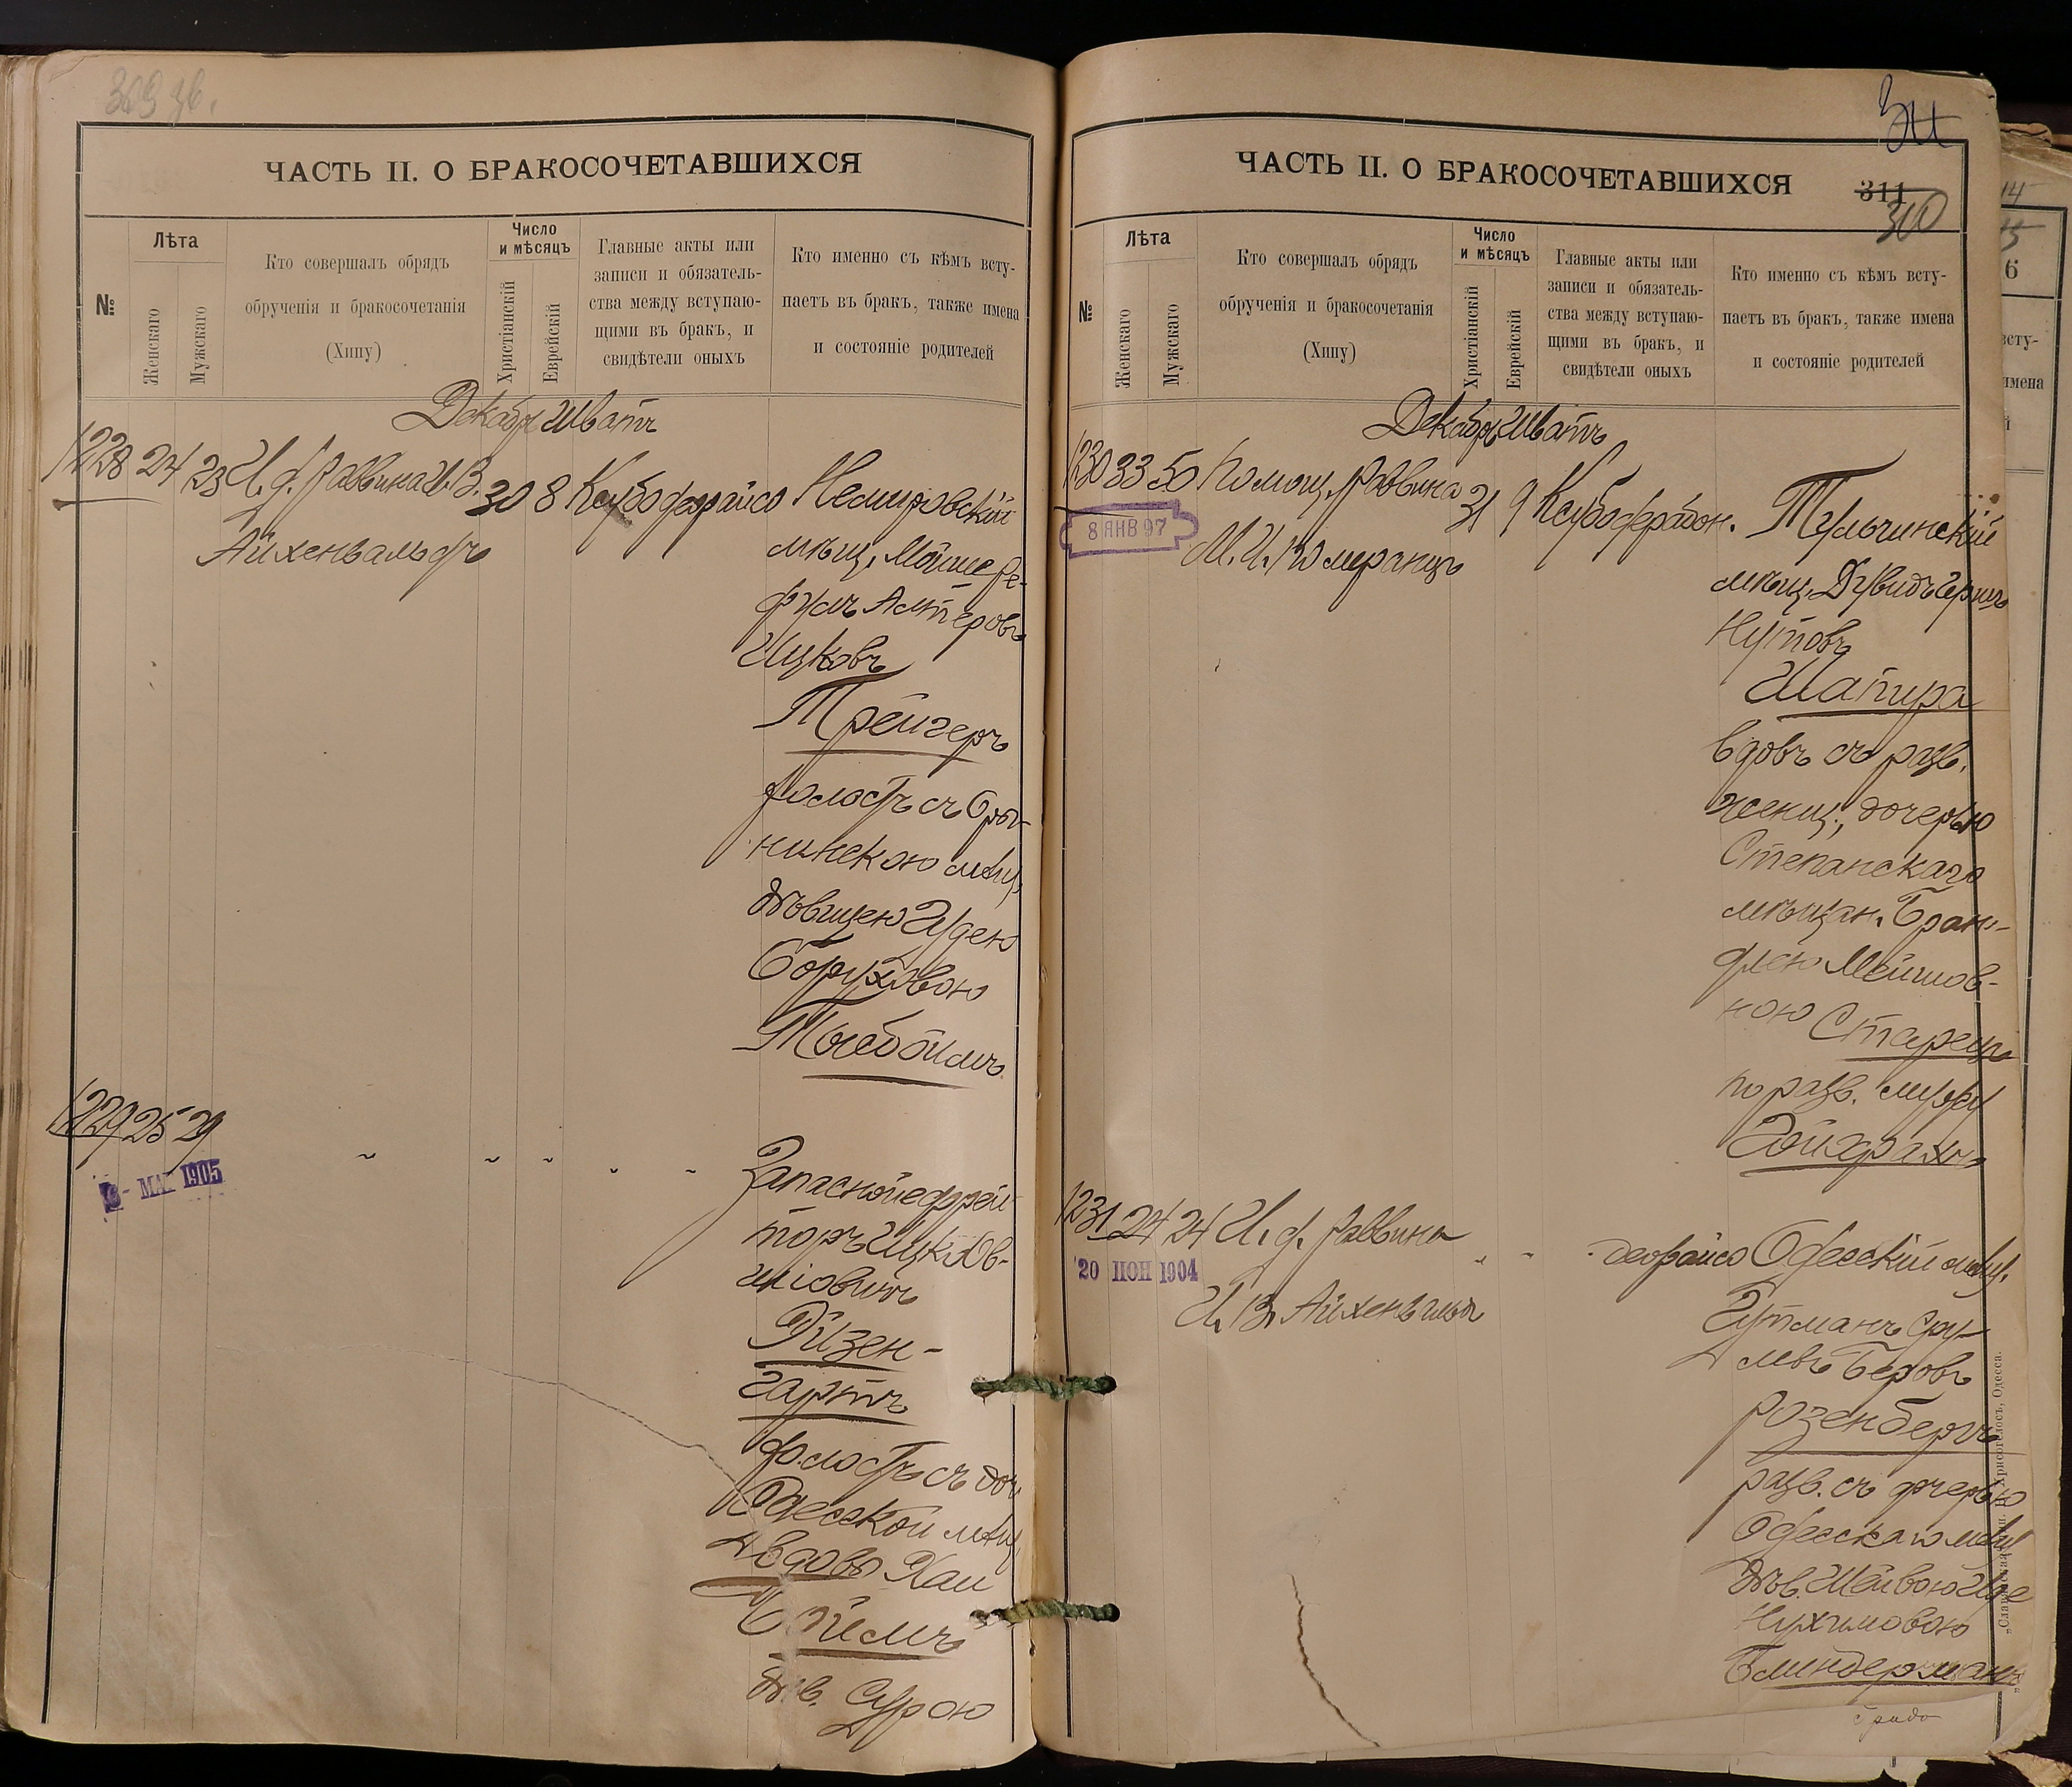 309 зв.
ЧАСТЬ II. О БРАКОСОЧЕТАВШИХСЯ
№
Лѣта
Женскаго
Мужскаго
Кто совершалъ обрядъ
обрученія и бракосочетанія
(Хипу)
Число
и мѣсяцъ
Христіанскій
Еврейскій
Главные акты или
записи и обязатель-
ства между вступаю-
щими въ бракъ, и
свидѣтели оныхъ
Кто именно съ кѣмъ всту-
паетъ въ бракъ, также имена
и состояніе родителей
Декабрь Шватъ
1228 24 23 И. д. Раввина И. В. 30 8 Ксубо дерайсо Немировскій
Айхенвальдъ
мѣщ. Мойше Ре-
фулъ Алтеровъ
Ицковъ
Трейгеръ
холостъ съ
нинскою мѣщ.
дѣвицею Гудею
Боруховою
1229 25 29
МАР 1905
Запасной ефрей-
торъ Ицко Ов-
шіовичъ
Айзен-
гартъ
холостъ съ доч.
Одесской мѣщ.
вдовы Хаи
дѣв. Сурою
311
ЧАСТЬ II. О БРАКОСОЧЕТАВШИХСЯ
311
310
№
Лѣта
Женскаго
Мужскаго
Кто совершалъ обрядъ
обрученія и бракосочетанія
(Хипу)
Число
и мѣсяцъ
Христіанскій
Еврейскій
Главные акты или
записи и обязатель-
ства между вступаю-
щими въ бракъ, и
свидѣтели оныхъ
Кто именно съ кѣмъ всту-
паетъ въ бракъ, также имена
и состояніе родителей
Декабрь Шватъ
1230 33 50 Помощ. Раввина 31 9 Ксубо дерабон. Тульчинскій
8 ЯНВ 97
М. И. Померанцъ
мѣщ. Дувидъ Гершъ
Нутовъ
Шапира
вдовъ съ разв.
женщ., дочерью
Степанскаго
мѣщан. Бран-
длею Мейшов-
ною Старецъ
по разв. мужу
Гойхрахъ
1231 24 24 И. д. Раввина " " дерайсо Одесскій мѣщ.
20 ІЮН 1904
И. В. Айхенвальдъ
Гутманъ Сру-
левъ Беровъ
Розенбергъ
разв. съ дочерью
Одесскаго мѣщ
дѣв. Шейвою Иде
Нухимовою
Блиндерманъ
„Славянская" тип. Хрисогелосъ, Одесса.